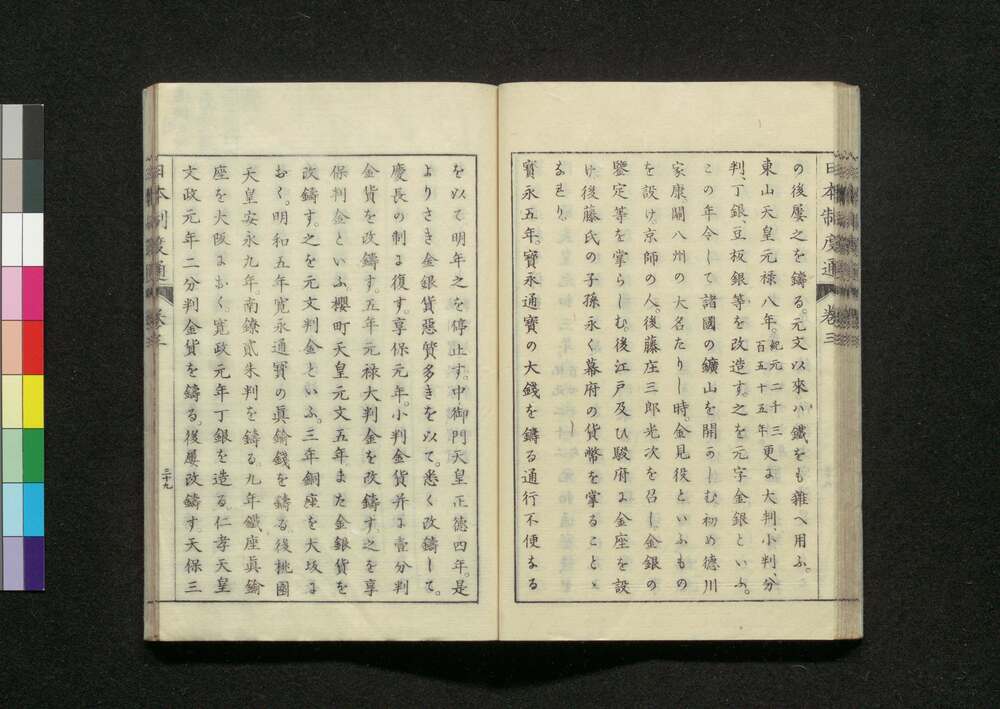 日本制度通 卷三
の後屢之を鑄る。元文以來ハ鐵をも雜へ用ふ。
東山天皇元禄八年。紀元二千三百五十五年。更に大判、小判、分
判、丁銀、豆板銀等を改造す。之を元字金銀といふ。
この年令して諸國の鑛山を開かしむ。初め德川
家康關八州の大名たりし時。金見役といふもの
を設け。京師の人。後藤庄三郎光次を召し金銀の
鑒定等を掌らしむ。後江戸及ひ駿府に金座を設
け。後藤氏の子孫永く幕府の貨幣を掌ることゝ
なれり。
寶永五年。寶永通寶の大錢を鑄る通行不便なる
を以て明年之を停止す。中御門天皇正德四年。是
よりさき金銀貨惡質多きを以て。悉く改鑄して。
慶長の制に復す。享保元年。小判金貨并に壹分判
金貨を改鑄す。五年元禄大判金を改鑄す。之を享
保判金といふ。櫻町天皇元文五年また金銀貨を
改鑄す。之を元文判金といふ。三年銅座を大坂に
おく。明和五年寛永通寶の眞鍮錢を鑄る。後桃園
天皇安永九年。南鐐貳朱判を鑄る。九年鐵座眞鍮
座を大阪におく。寛政元年丁銀を造る。仁孝天皇
文政元年二分判金貨を鑄る。後屢改鑄す。天保三
日本制度通 卷三
三十九